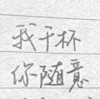 我干杯
你随意